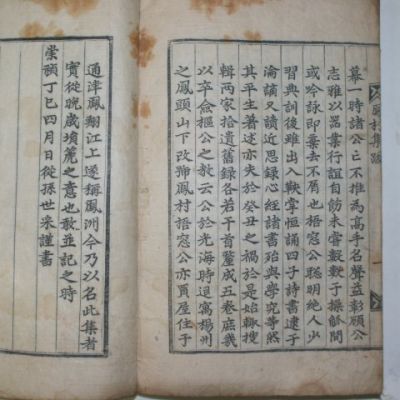 幕一時諸公亡不推為高手名聲益彰願公
志雅以器業行誼自飭未嘗數數于操觚間
或吟詠即棄去不屑也梧窓公聰明絶人少
習典訓後雖出入鞅掌恒誦四子詩書逮于
淪謫又讀近思録心經諸書殆與學究等然
其平生著述亦失於癸丑之禍於是始輙搜
輯两家拾遺舊録各若干首釐成五卷庶幾
以卒僉樞公之敎云公於光海時退寓楊州
之鳳頭山下改號鳳村梧窓公亦買屋住于
通津鳳翔江上遂稱鳳洲今乃以名此集者
實從晩歲壎篪之意也敢並記之時
崇禎丁巳四月日從孫世采謹書
村集跋